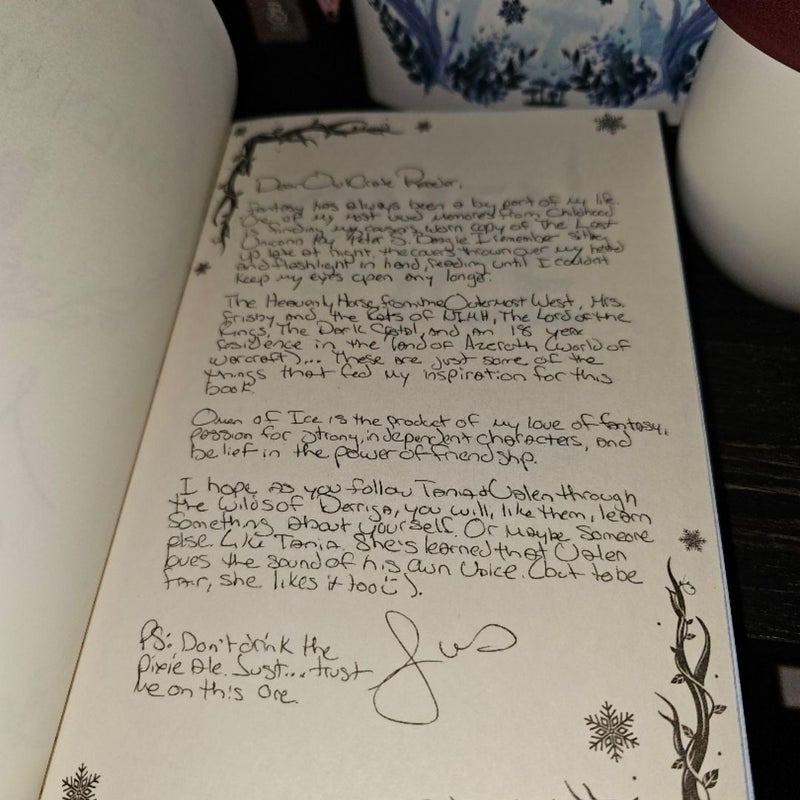 Dear OwlCrate Reader,
Fantasy has always been a big part of my life.
One of my most vivid memories from childhood
is finding my cousin's worn copy of The Last
Unicorn by Peter S. Beagle. I remember sitting
up late at night, the covers thrown over my head
and flashlight in hand, reading until I couldn't
keep my eyes open any longer.
The Heavenly Horse from the Outermost West, Mrs.
Frisby and the Rats of NIMH, The Lord of the
Rings, The Dark Crystal, and an 18 year
residence in the land of Azeroth (World of
Warcraft)... These are just some of the
things that fed my inspiration for this
book.
Queen of Ice is the product of my love of fantasy,
passion for strong, independent characters, and
belief in the power of friendship.
I hope as you follow Tania & Valen through
the wilds of Derriga, you will, like them, learn
something about yourself. Or maybe someone
else. Like Tania. She's learned that Valen
loves the sound of his own voice. (but to be
fair, she likes it too ☺).
PS: Don't drink the
pixie ale. Just... trust
me on this one.